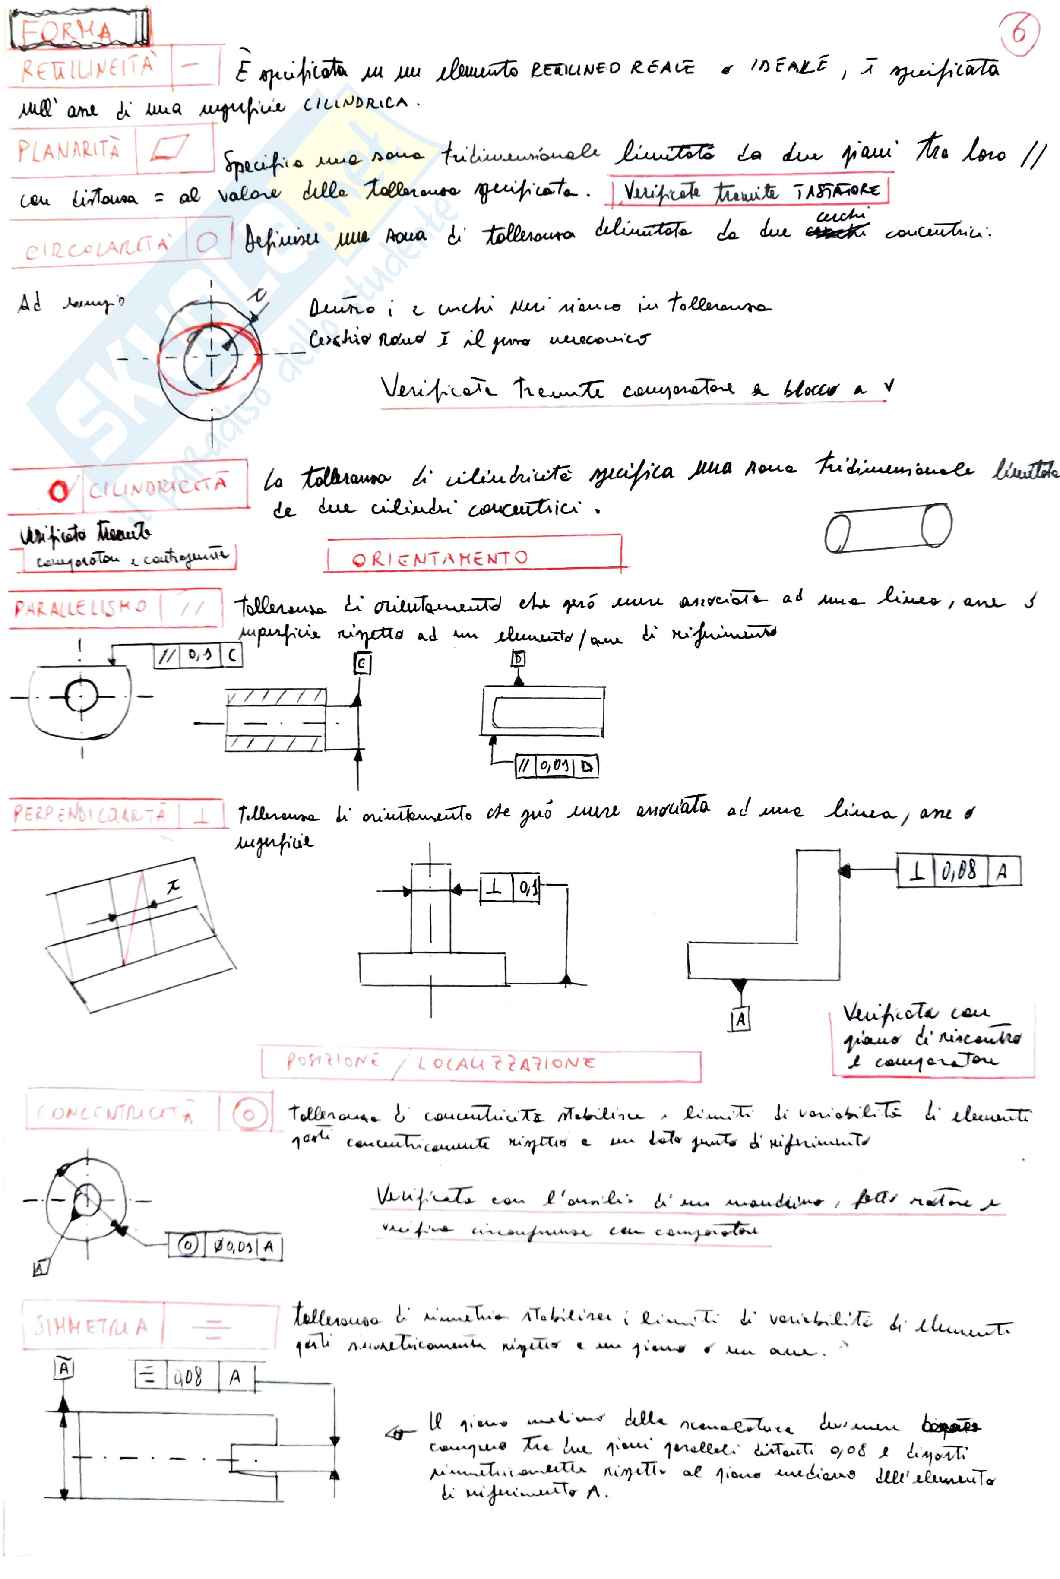 FORMA
6
RETTILINEITÀ —
È specificata su un elemento RETTILINEO REALE o IDEALE, è specificata
sull'asse di una superficie CILINDRICA.
PLANARITÀ
Specifica una zona tridimensionale limitata da due piani tra loro //
con distanza = al valore della tolleranza specificata. Verificata tramite TASTATORE
CIRCOLARITÀ
Definisce una zona di tolleranza delimitata da due cerchi concentrici.
Ad esempio
t
Dentro i 2 cerchi neri siamo in tolleranza
Cerchio rosso è il pezzo meccanico
Verificata tramite comparatore e blocco a V
SKUOLA.net
il paradiso dello studente
CILINDRICITÀ
La tolleranza di cilindricità specifica una zona tridimensionale limitata
da due cilindri concentrici.
Verificata tramite
comparatore e contropunte
ORIENTAMENTO
PARALLELISMO //
tolleranza di orientamento che può essere associata ad una linea, asse o
superficie rispetto ad un elemento/asse di riferimento
// 0,1 C
C
D
// 0,01 D
PERPENDICOLARITÀ ⊥
tolleranza di orientamento che può essere associata ad una linea, asse o
superficie
t
⊥ 0,1
⊥ 0,08 A
A
Verificata con
piano di riscontro
e comparatore
POSIZIONE / LOCALIZZAZIONE
CONCENTRICITÀ ◎
tolleranza di concentricità stabilisce i limiti di variabilità di elementi
posti concentricamente rispetto a un dato punto di riferimento
Verificata con l'ausilio di un mandrino, fatto ruotare e
verifica circonferenze con comparatore
◎ Ø0,01 A
A
SIMMETRIA
tolleranza di simmetria stabilisce i limiti di variabilità di elementi
posti simmetricamente rispetto a un piano o un asse.
A
0,08 A
Il piano mediano della scanalatura dev'essere
compreso tra due piani paralleli distanti 0,08 e disposti
simmetricamente rispetto al piano mediano dell'elemento
di riferimento A.